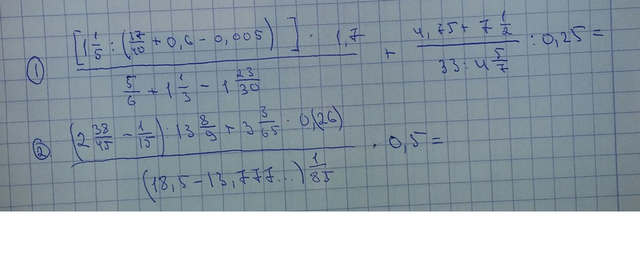 ① [1 1/5 : (17/40 + 0,6 - 0,005)] · 1,7 / 5/6 + 1 1/3 - 1 23/30 + 4,75 + 7 1/2 / 33 : 4 5/7 : 0,25 =
② (2 38/45 - 1/15) : 13 8/9 + 3 3/65 · 0,(26) / (18,5 - 13,777...) 1/85 · 0,5 =